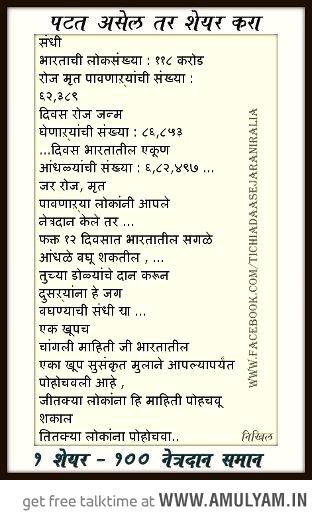 पटत असेल तर शेयर करा
संधी
भारताची लोकसंख्या : ११८ करोड
रोज मृत पावणाऱ्यांची संख्या :
६२,३८९
दिवस रोज जन्म
घेणाऱ्यांची संख्या : ८६,८५३
...दिवस भारतातील एकूण
आंधळ्यांची संख्या : ६,८२,४९७ ...
जर रोज, मृत
पावणाऱ्या लोकांनी आपले
नेत्रदान केले तर ...
फक्त १२ दिवसात भारतातील सगळे
आंधळे बघू शकतील , ...
तुच्या डोळ्यांचे दान करून
दुसऱ्यांना हे जग
बघण्याची संधी या ...
एक खूपच
चांगली माहिती जी भारतातील
एका खूप सुसंकृत मुलाने आपल्यापर्यंत
पोहोचवली आहे ,
जीतक्या लोकांना हि माहिती पोहचवू
शकाल
तितक्या लोकांना पोहोचवा..
निखिल
WWW.FACEBOOK.COM/TICHIADAASEJARANIRALIA
१ शेयर - १०० नेत्रदान समान
get free talktime at WWW.AMULYAM.IN